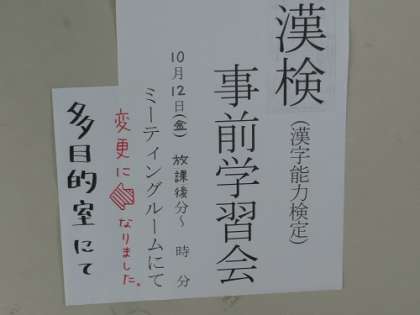 漢検
(漢字能力検定)
事前学習会
10月12日(金) 放課後分〜 時 分
ミーティングルームにて
変更になりました。
多目的室にて